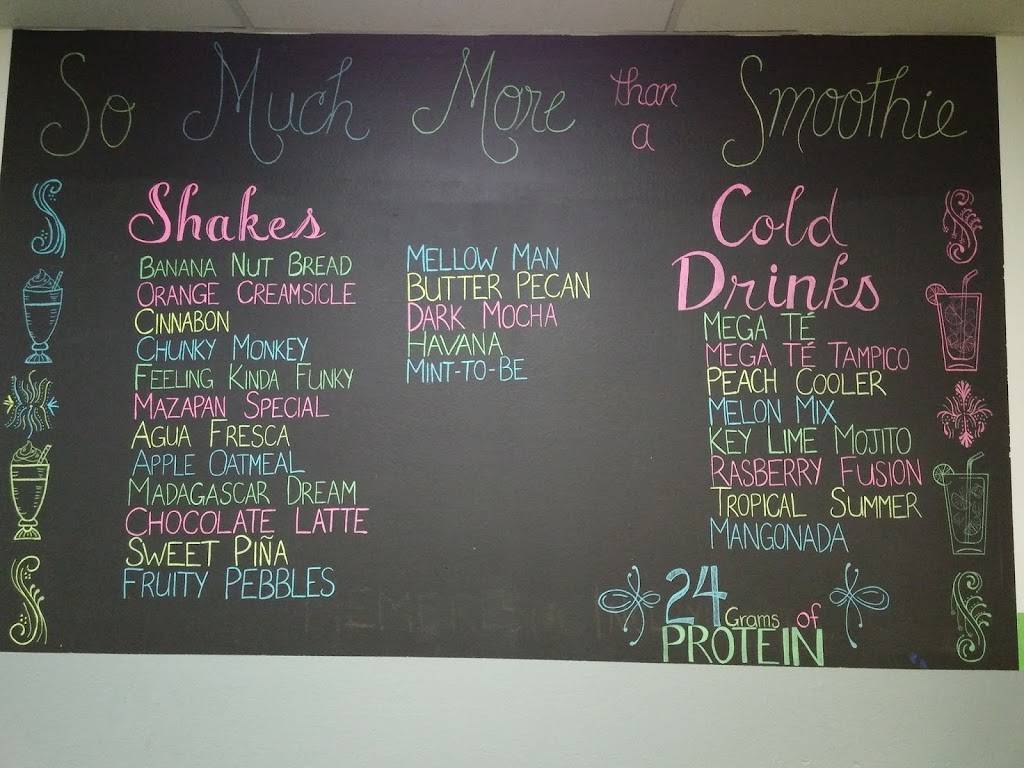 So Much More than a Smoothie
Shakes
BANANA NUT BREAD
ORANGE CREAMSICLE
CINNABON
CHUNKY MONKEY
FEELING KINDA FUNKY
MAZAPAN SPECIAL
AGUA FRESCA
APPLE OATMEAL
MADAGASCAR DREAM
CHOCOLATE LATTE
SWEET PIÑA
FRUITY PEBBLES
MELLOW MAN
BUTTER PECAN
DARK MOCHA
HAVANA
MINT-TO-BE
Cold
Drinks
MEGA TÉ
MEGA TÉ TAMPICO
PEACH COOLER
MELON MIX
KEY LIME MOJITO
RASBERRY FUSION
TROPICAL SUMMER
MANGONADA
24 Grams of
PROTEIN